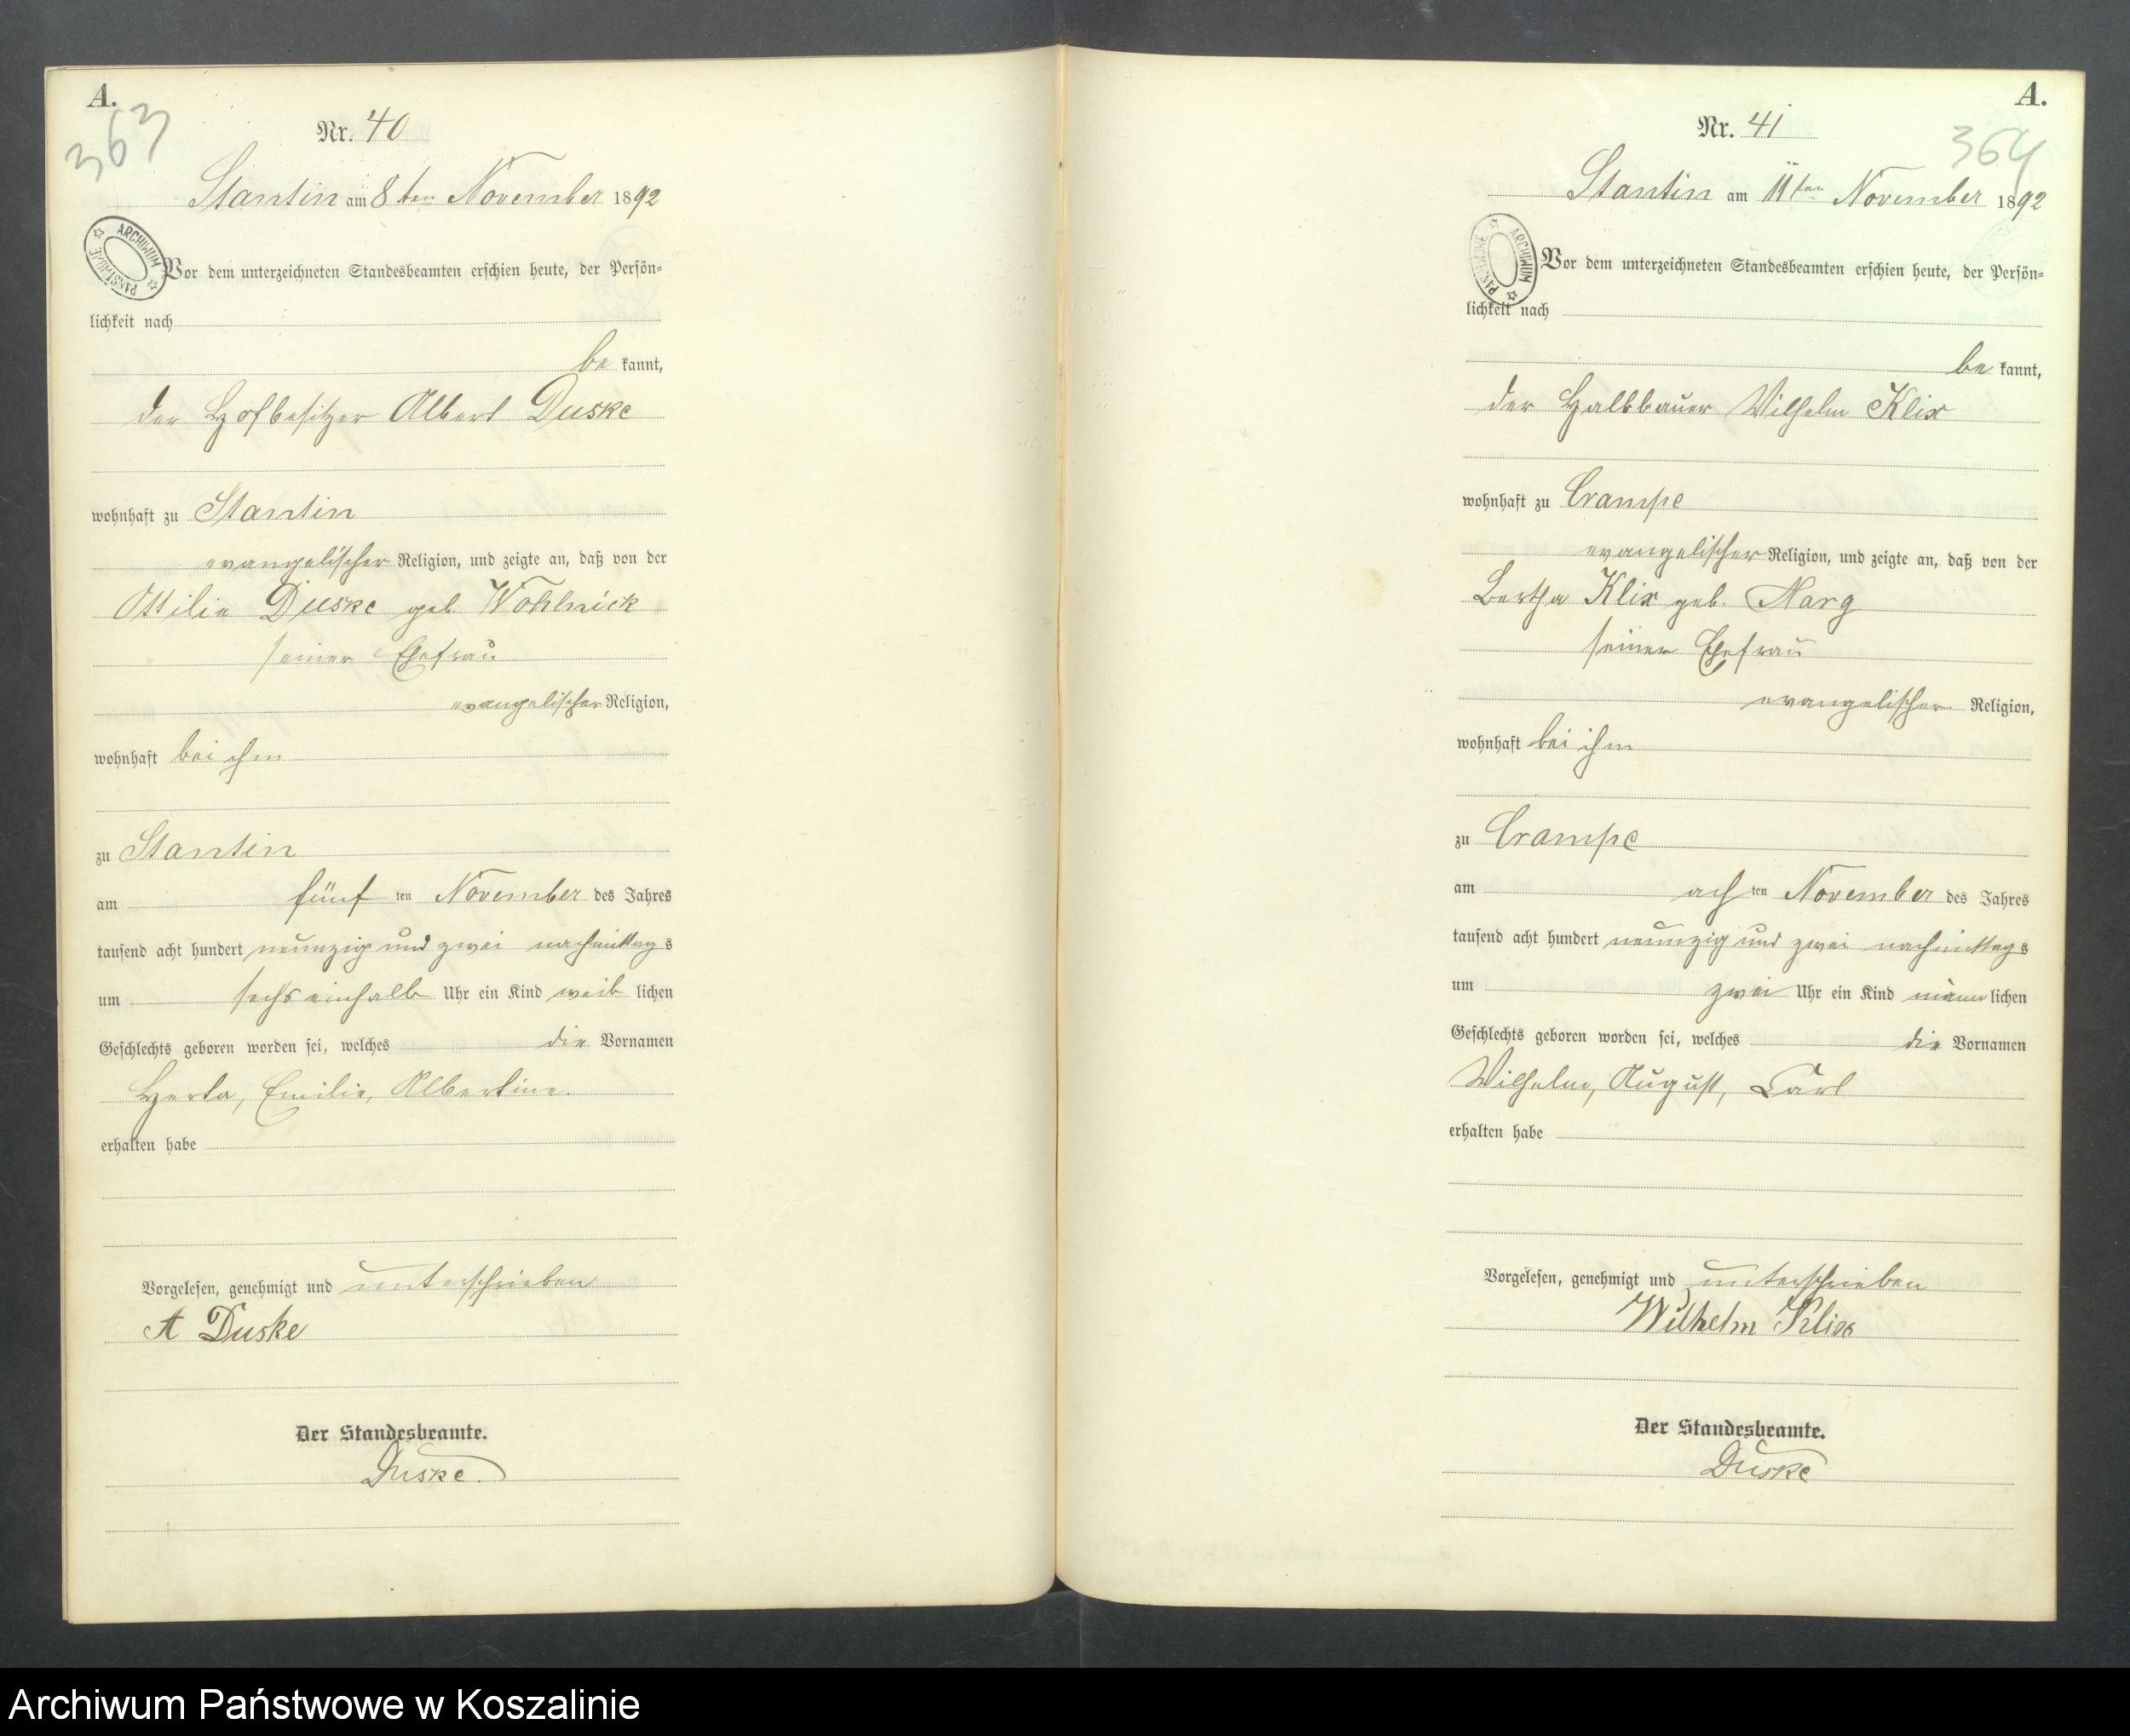 A.
363
Nr. 40
Stantin am 8ten November 1892
ARCHIWUM PAŃSTWOWE
Vor dem unterzeichneten Standesbeamten erschien heute, der Persön-
lichkeit nach
be kannt,
der Hofbesitzer Albert Duske
wohnhaft zu Stantin
evangelischer Religion, und zeigte an, daß von der
Ottilie Duske geb
seiner Ehefrau
evangelischer Religion,
wohnhaft bei ihm
zu Stantin
am fünf ten November des Jahres
tausend acht hundert neunzig und zwei nachmittags
um sechs einhalb Uhr ein Kind weib lichen
Geschlechts geboren worden sei, welches die Vornamen
Herta, Emilie, Albertine.
erhalten habe
Vorgelesen, genehmigt und unterschrieben
A Duske
Der Standesbeamte.
Duske.
A.
364
Nr. 41
Stantin am 11ten November 1892
ARCHIWUM PAŃSTWOWE
Vor dem unterzeichneten Standesbeamten erschien heute, der Persön-
lichkeit nach
be kannt,
der Halbbauer Wilhelm Klix
wohnhaft zu Crampe
evangelischer Religion, und zeigte an, daß von der
Bertha Klix geb. Marg
seiner Ehefrau
evangelischer Religion,
wohnhaft bei ihm
zu Crampe
am ach ten November des Jahres
tausend acht hundert neunzig und zwei nachmittags
um zwei Uhr ein Kind männ lichen
Geschlechts geboren worden sei, welches die Vornamen
Wilhelm, August, Carl
erhalten habe
Vorgelesen, genehmigt und unterschrieben
Wilhelm Klix
Der Standesbeamte.
Duske
Archiwum Państwowe w Koszalinie